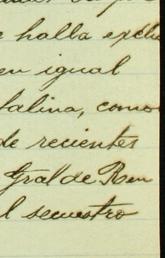 e halla exclu
en igual
talina, como
de recientes
Gral de Ren
l secuestro